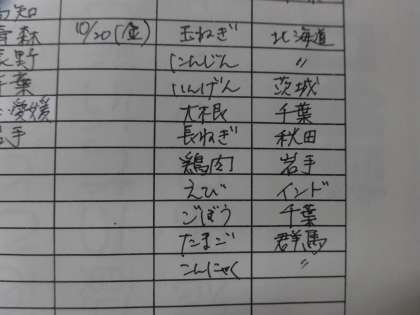 高知
青森 10/20(金) 玉ねぎ 北海道
長野 にんじん 〃
千葉 いんげん 茨城
愛媛 大根 千葉
岩手 長ねぎ 秋田
鶏肉 岩手
えび インド
ごぼう 千葉
たまご 群馬
こんにゃく 〃